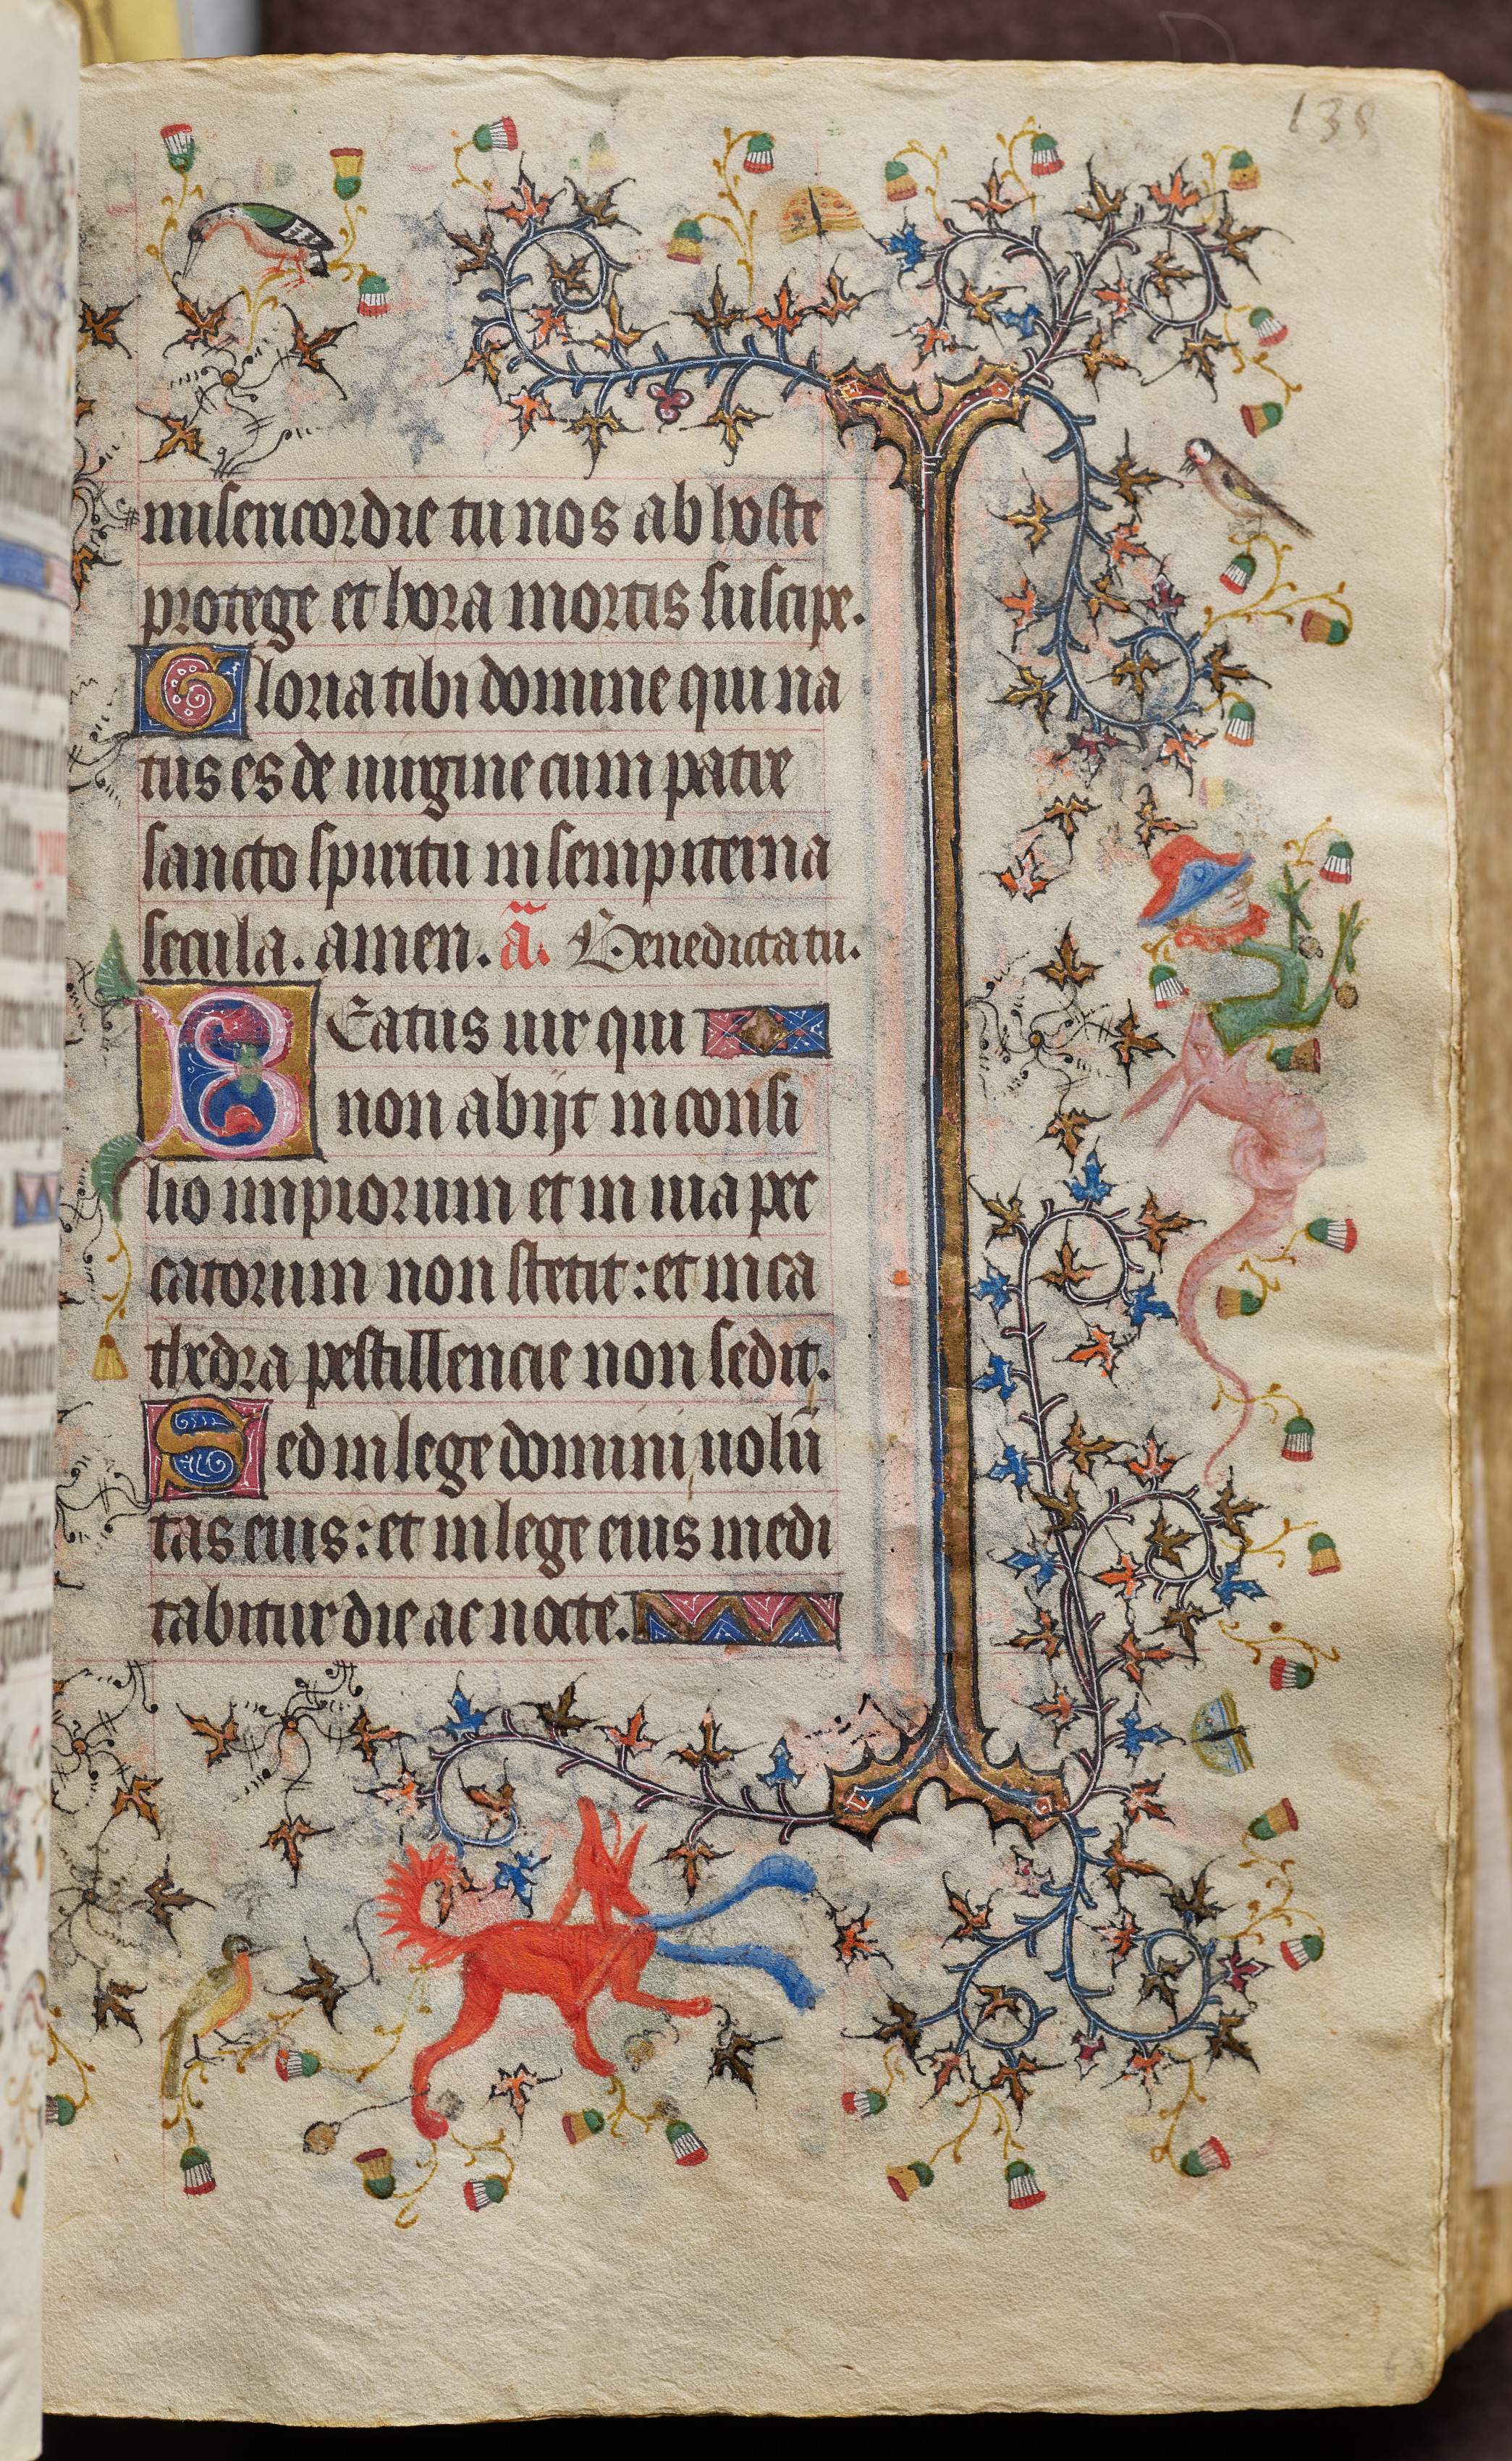 138
misericordie tu nos ab hoste
protege et hora mortis suscipe.
Gloria tibi domine qui na
tus es de uirgine cum patre
sancto spiritu in sempiterna
secula. amen. a͞. Benedicta tu.
BEatus uir qui
non abijt in consi
lio impiorum et in uia pec
catorum non stetit: et in ca
thedra pestillencie non sedit.
Sed in lege domini uolū
tas eius: et in lege eius medi
tabitur die ac nocte.